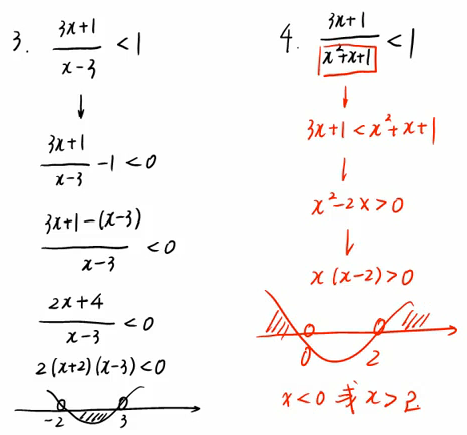 3. (3x+1)/(x-3) < 1
↓
(3x+1)/(x-3) - 1 < 0
(3x+1-(x-3))/(x-3) < 0
(2x+4)/(x-3) < 0
2(x+2)(x-3) < 0
-2 3
4. (3x+1)/(x²+x+1) < 1
↓
3x+1 < x²+x+1
↓
x²-2x > 0
↓
x(x-2) > 0
0 2
x<0 或 x>2.